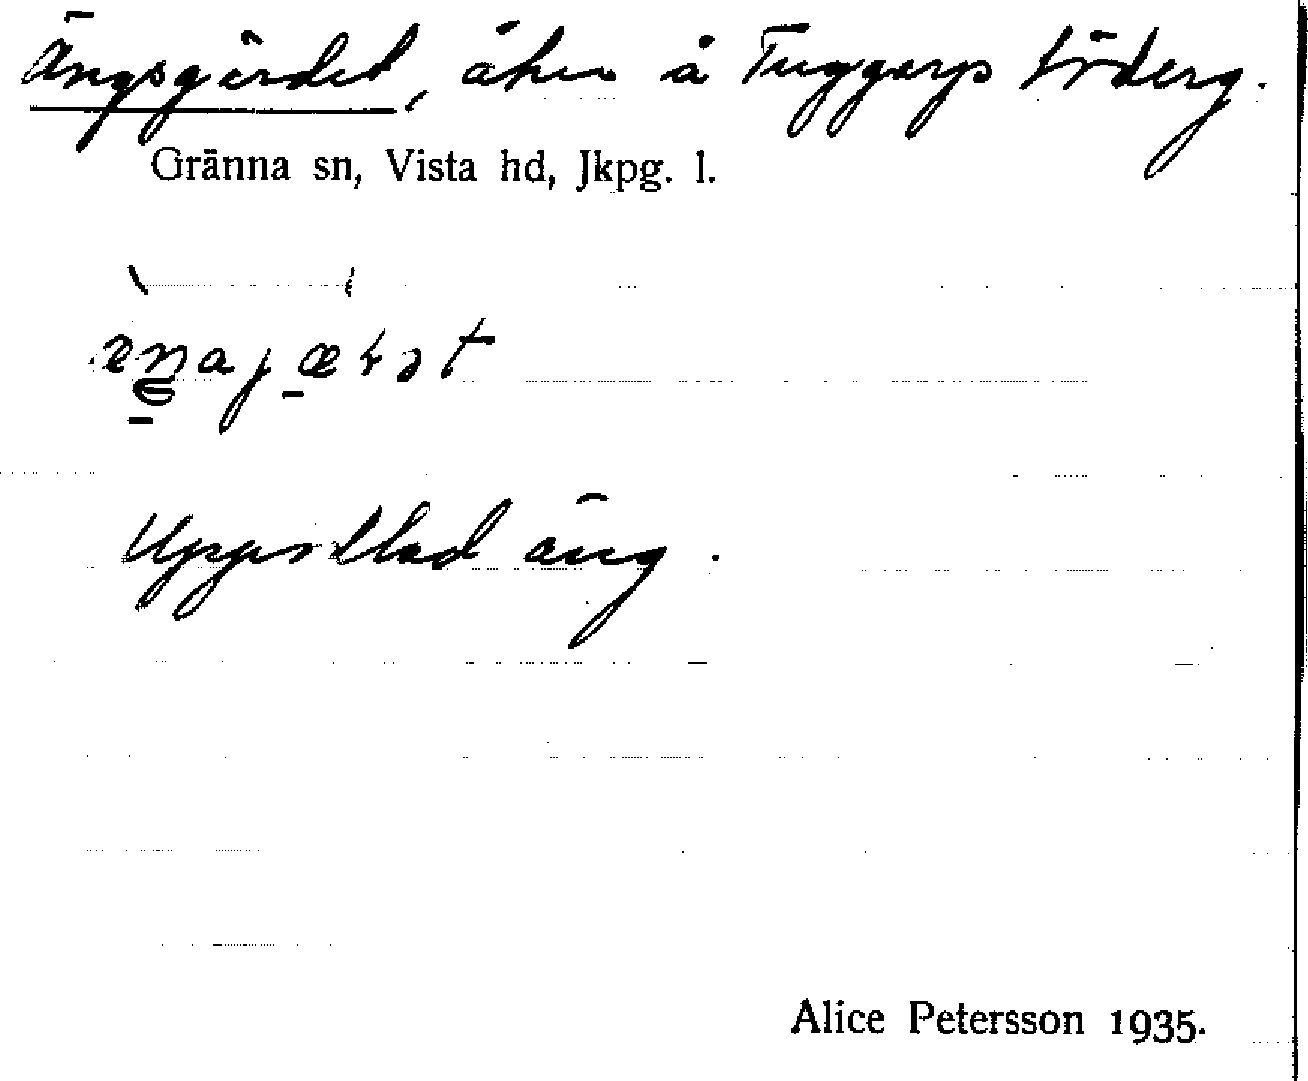 Ängsgärdet, åker å Tuggarps Söderg.
Gränna sn, Vista hd, Jkpg. l.
Uppodlad äng.
Alice Petersson 1935.